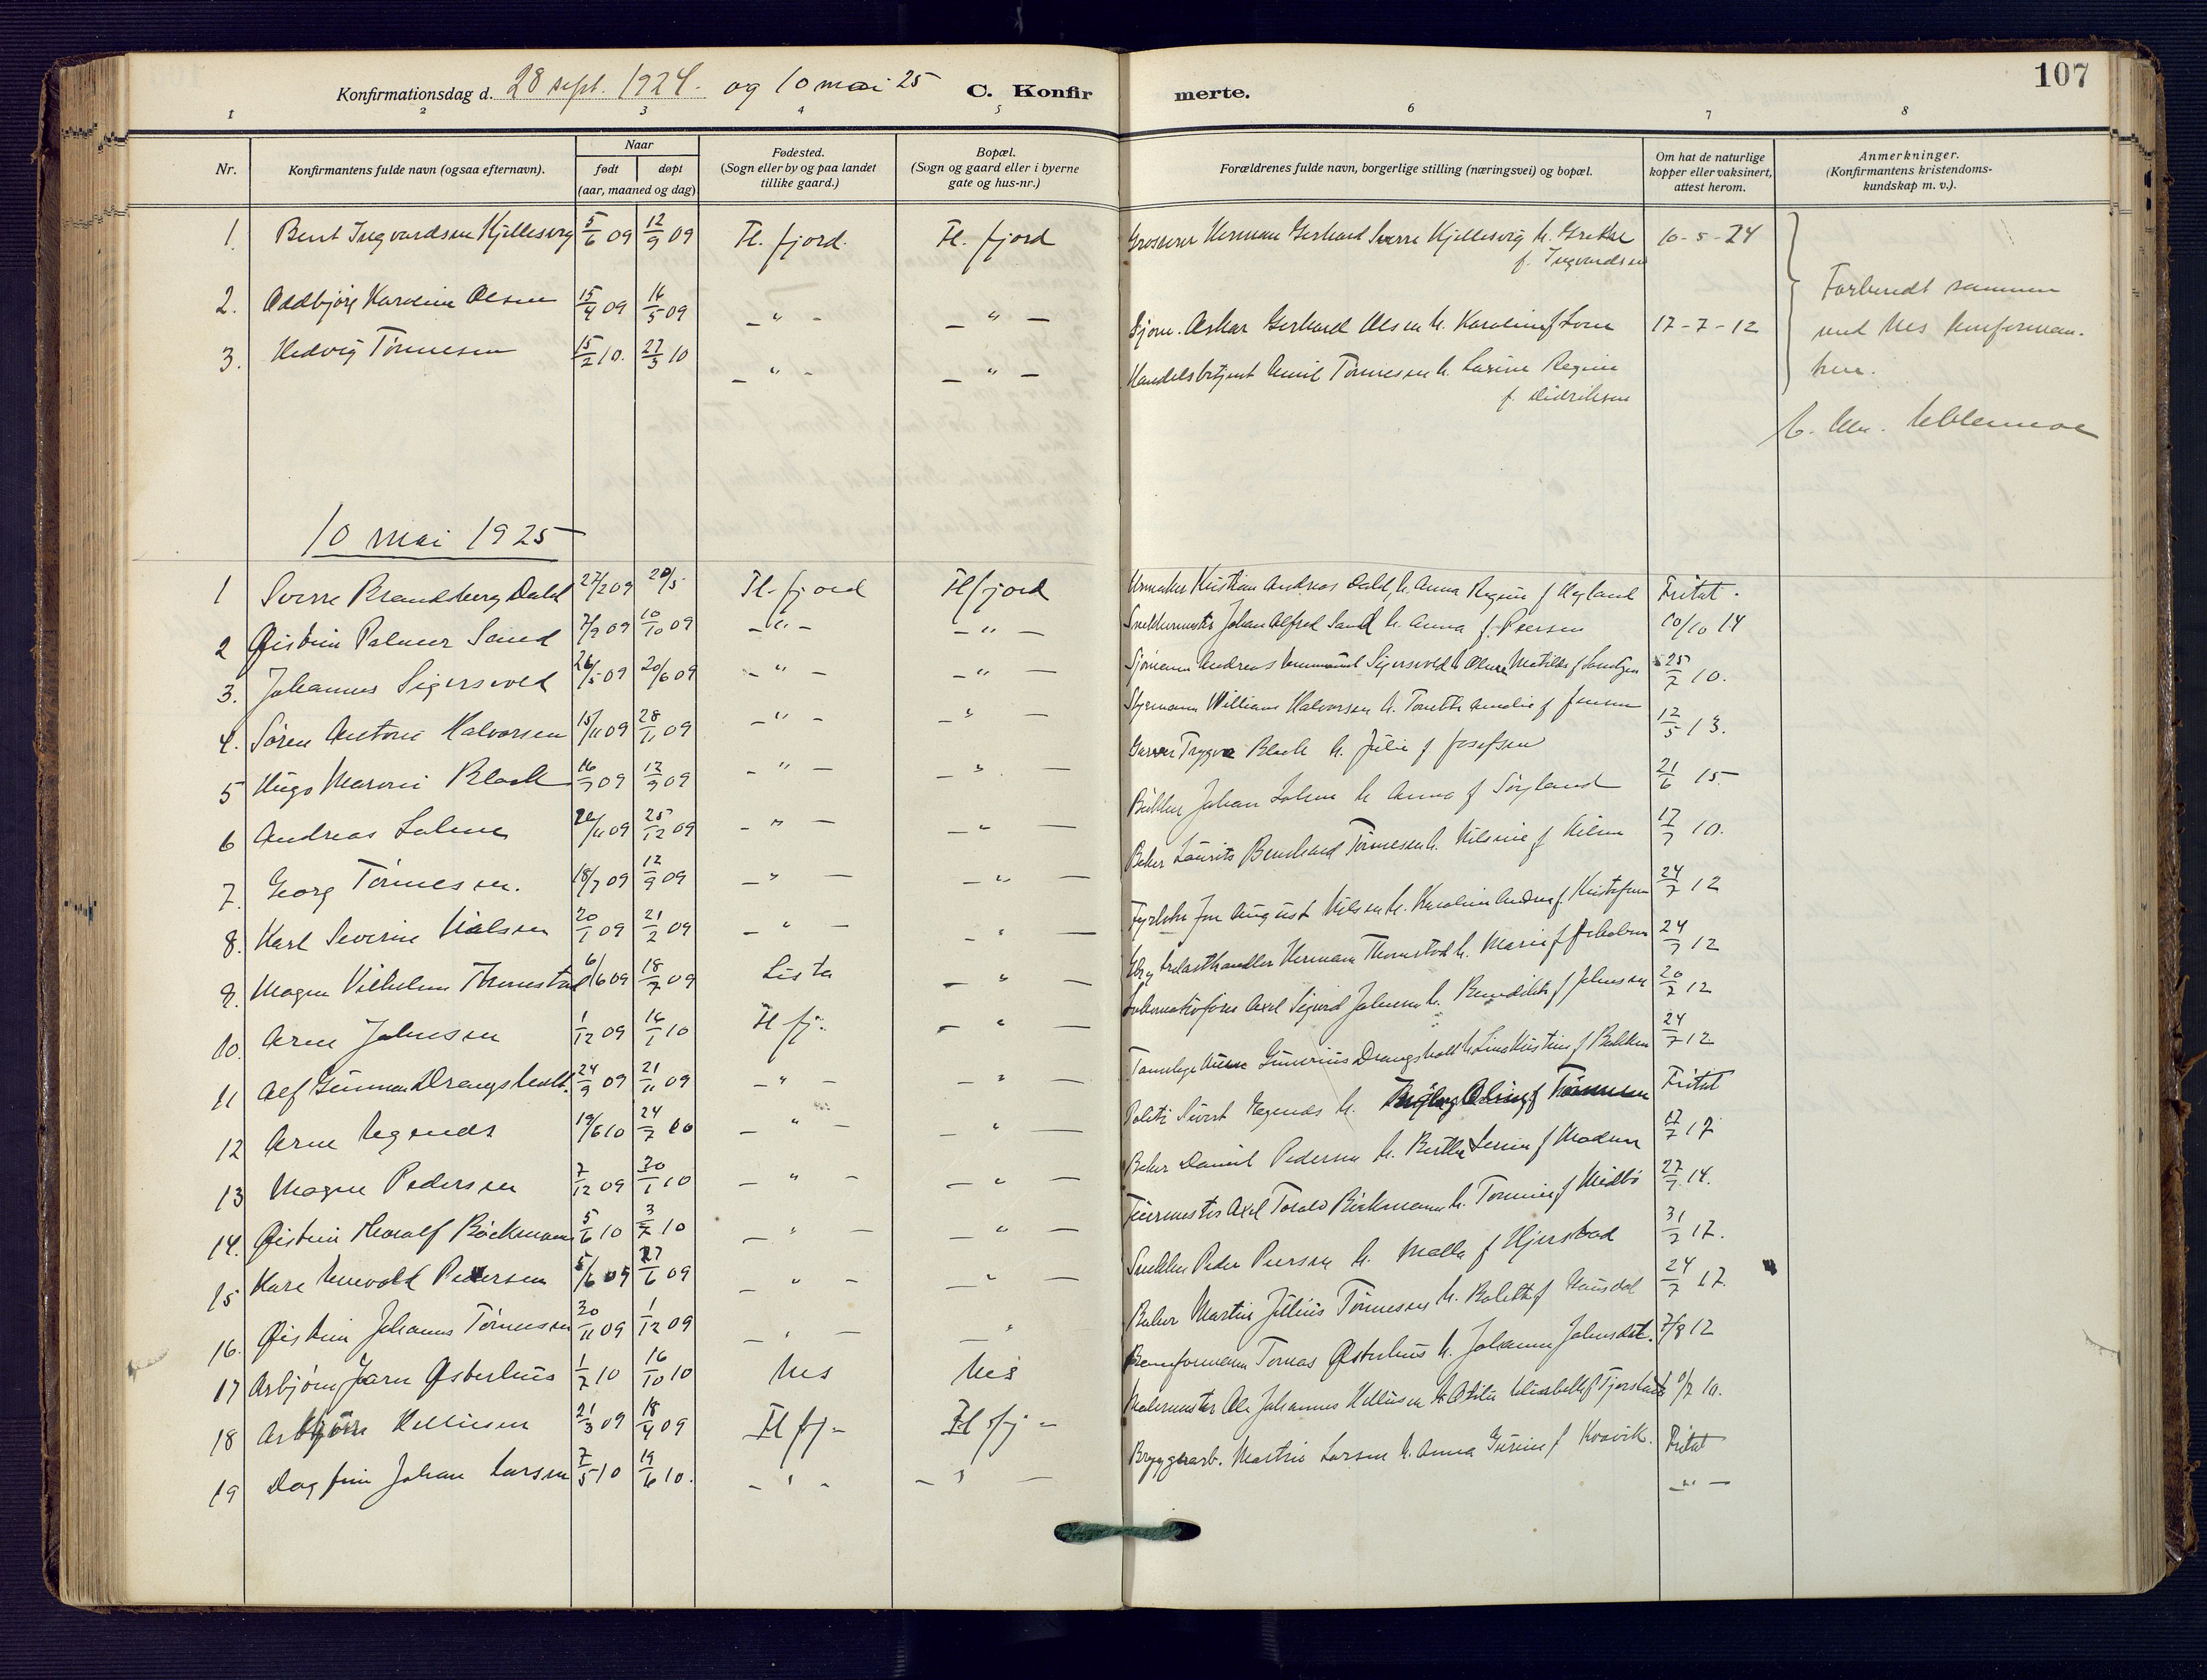 107
Konfirmationsdag d. 28 sept. 1924. og 10 mai 25 C. Konfirmerte.
1 2 3 4 5 6 7 8
Nr. Konfirmantens fulde navn (ogsaa efternavn). Naar født døpt (aar, maaned og dag) Fødested. (Sogn eller by og paa landet tillike gaard.) Bopæl. (Sogn og gaard eller i byerne gate og hus-nr.) Forældrenes fulde navn, borgerlige stilling (næringsvei) og bopæl. Om hat de naturlige kopper eller vaksinert, attest herom. Anmerkninger. (Konfirmantens kristendomskundskap m. v.).
1. Bent Ingvardsen Kjellesvig 5/6 09 12/9 09 Fl. fjord. Fl. fjord Grosserer Herman Gerhard Sverre Kjellesvig h. Grethe 10-5-24
f. Ingvardsen
2. Oddbjörg Karoline Olsen 15/4 09 16/5 09 - " - - " - Sjöm. Oskar Gerhard Olsen h. Karoline f 17-7-12
3. Hedvig Tönnesen 15/2 10. 27/3 10 - " - - " - Handelsbetjent Emil Tönnesen h. Laurine Regine
f. Didriksen
Forberedt sammen
med Nes konfirman-
ter.
10 mai 1925
1 Sverre Brandsberg Dahl 27/2 09 20/5 Fl. fjord Fl fjord Urmaker Kristian Andreas Dahl, h. Anna Regine f Høyland Fritat.
2 Øistein Palmer Sand 7/9 09 10/10 09 - " - - " - Snekkermester Johan Alfred Sand h. Anna f. Peersen 10/10 14
3. Johannes Sigersvold 26/5 09 20/6 09 - " - - " - Sjömann Andreas Sigersvold h Matilde f 25/7 10.
4. Sören Antoni Halvorsen 15/11 09 28/11 09 - " - - " - Styrmann William Halvorsen h. Tonette Amalie f Jensen 12/5 13.
5 Hugo Maroni Block 16/7 09 12/9 09 - " - - " - Garver Trygve Block h. Julie f Josefsen 21/6 15
6 Andreas Salme 22/11 09 25/12 09 - " - - " - Bökker Johan Salme h Anna f Söyland 17/7 10.
7. Georg Tönnesen. 18/7 09 12/9 09 - " - - " - Baker Laurits Bernhard Tönnesen h. Nilsine f Nilsen 24/7 12
8. Karl Severin Nielsen 20/1 09 21/2 09 - " - - " - August Nilsen h. Karoline Andrea f. Kristofersen 24/7 12
9. Magne Vilhelm Thomstad 6/6 09 18/7 09 Lista - " - Herman Thomstad h. Marie f Jakobsen 20/7 12
10. Arne Johnsen 1/12 09 16/1 10 Fl fj. - " - Lokomotivfører Axel Sigurd Johnsen h. Benedikte f Johnsen 24/7 12
11 Alf Gunnar Drangsholt. 24/9 09 21/11 09 - " - - " - Tannlege Gunerius Drangsholt h Lina Kristine f Bakken Fritat
12 Arne Egenes 19/6 10 24/7 10 - " - - " - Politi Sivert Egenes h. f Tönnesen 17/7 12
13 Magne Pedersen 7/12 09 30/1 10 - " - - " - Baker Daniel Pedersen h. Berthe Serine f Madsen 27/7 14.
14. Øistein Haralf Böckmann 5/6 10 3/7 10 - " - - " - Axel Torald Böckmann h. f Midbö 31/7 12.
15 Kare Enevald Pedersen 5/6 09 27/6 09 - " - - " - Snekker Peder Peersen h. Malla f Hjerstad 24/7 12.
16. Øistein Johannes Tönnesen 30/11 09 1/12 09 - " - - " Baker Martin Julius Tönnesen h. Bolette f Hausdal 7/8 12
17 Asbjörn Jarn Østerhus 1/7 10 16/10 10 Nes Nes Banformann Tomas Østerhus h. Johanne Johnsdat. 7/7 10.
18 Asbjörn Helliesen 21/3 09 18/4 09 Fl fj - Fl fj - Malermester Ole Johannes Helliesen h Otilie Elisabeth f Tjerstad Fritat
19 Dagfinn Johan Larsen 7/5 10 19/6 10. - " - - " - Bryggearb. Martin Larsen h. Anna Gurine f Kvavik. - " -